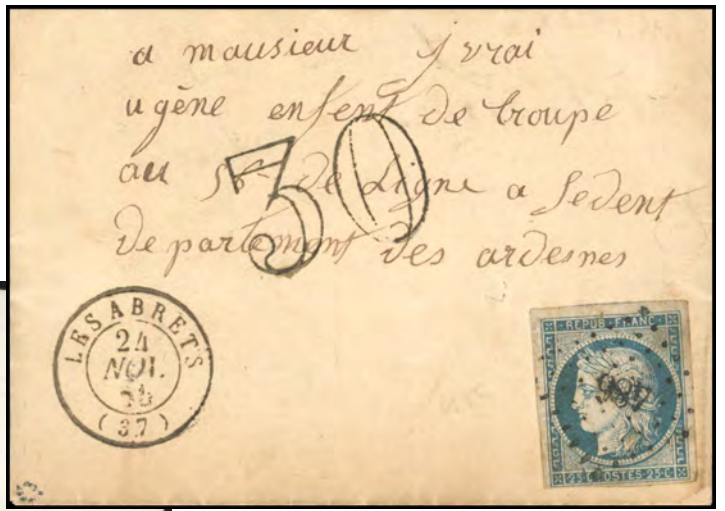 a mausieur jvrai
ugène enfent de troupe
au 5 de Ligne a Sedent
departement des ardesnes
30
LES ABRETS
24
NOV.
54
(37)
REPUB. FRANC.
987
25 C. POSTES 25 C.